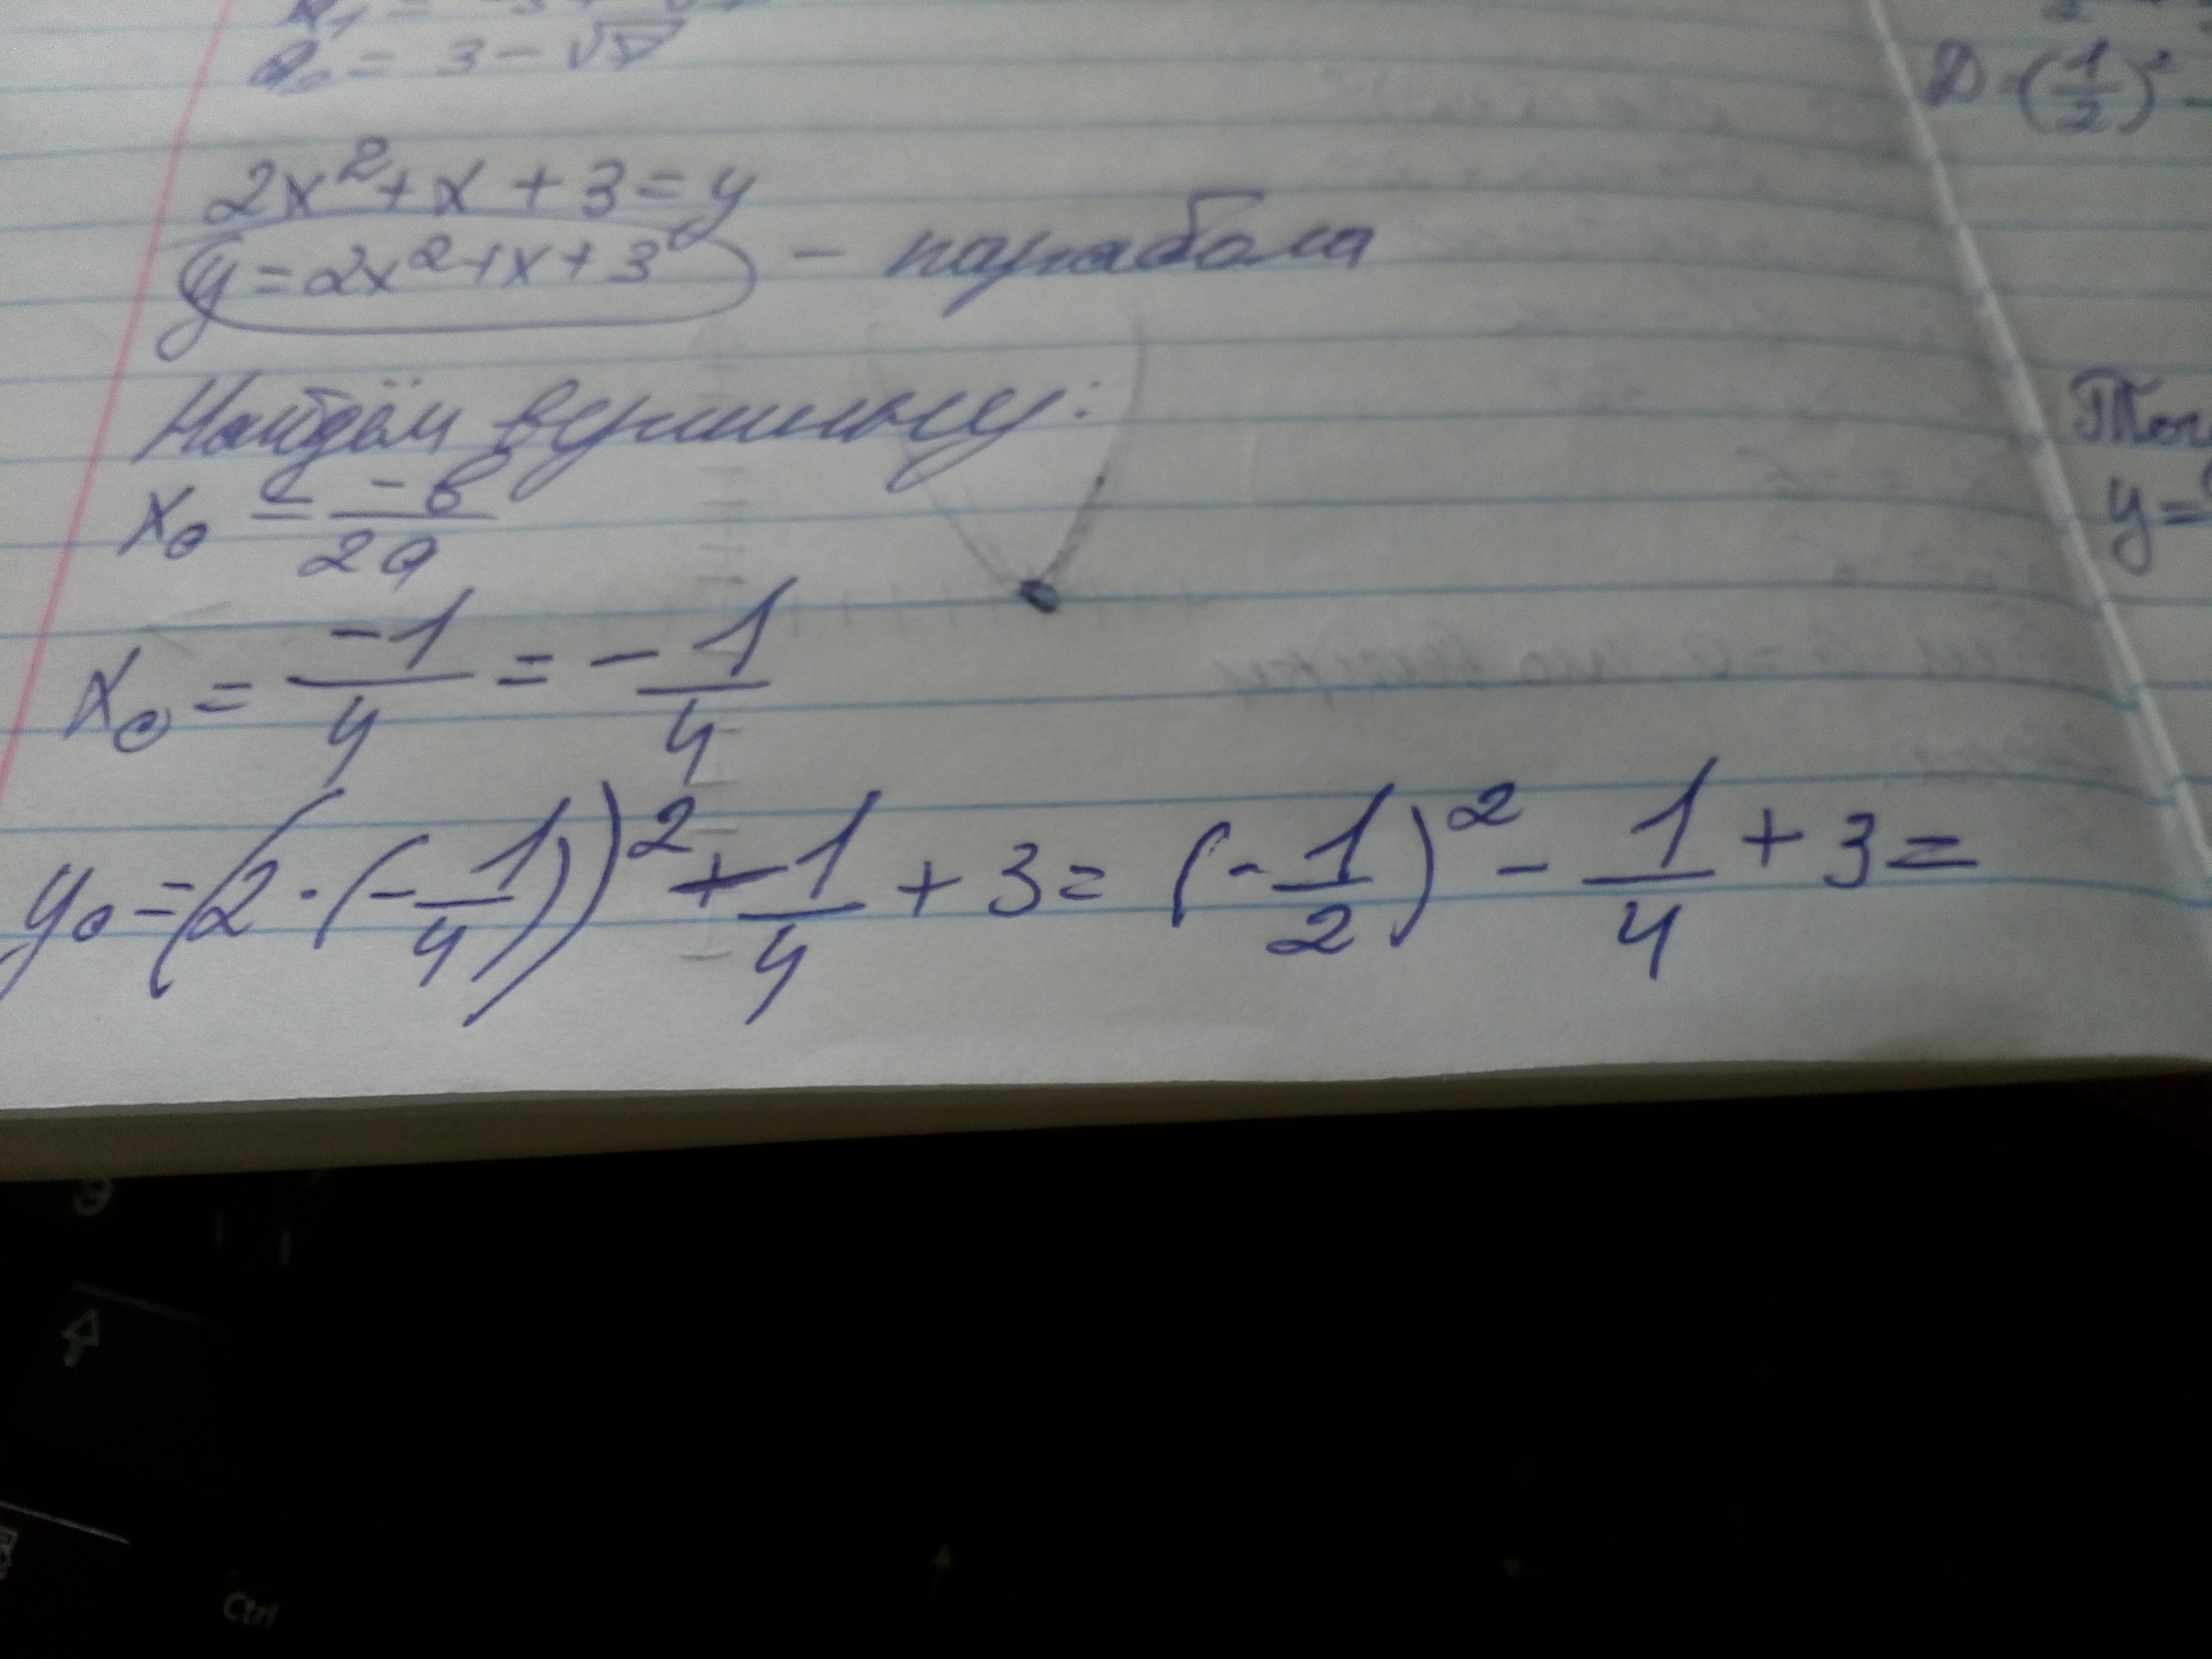 = 3 - √5
2x² + x + 3 = y
y = 2x² + x + 3 - парабола
Найдём вершину:
x₀ = -в/2a
x₀ = -1/4 = - 1/4
y₀ = (2 · (- 1/4))² - 1/4 + 3 = (- 1/2)² - 1/4 + 3 =
D = (1/2)² -
y =
Ctrl